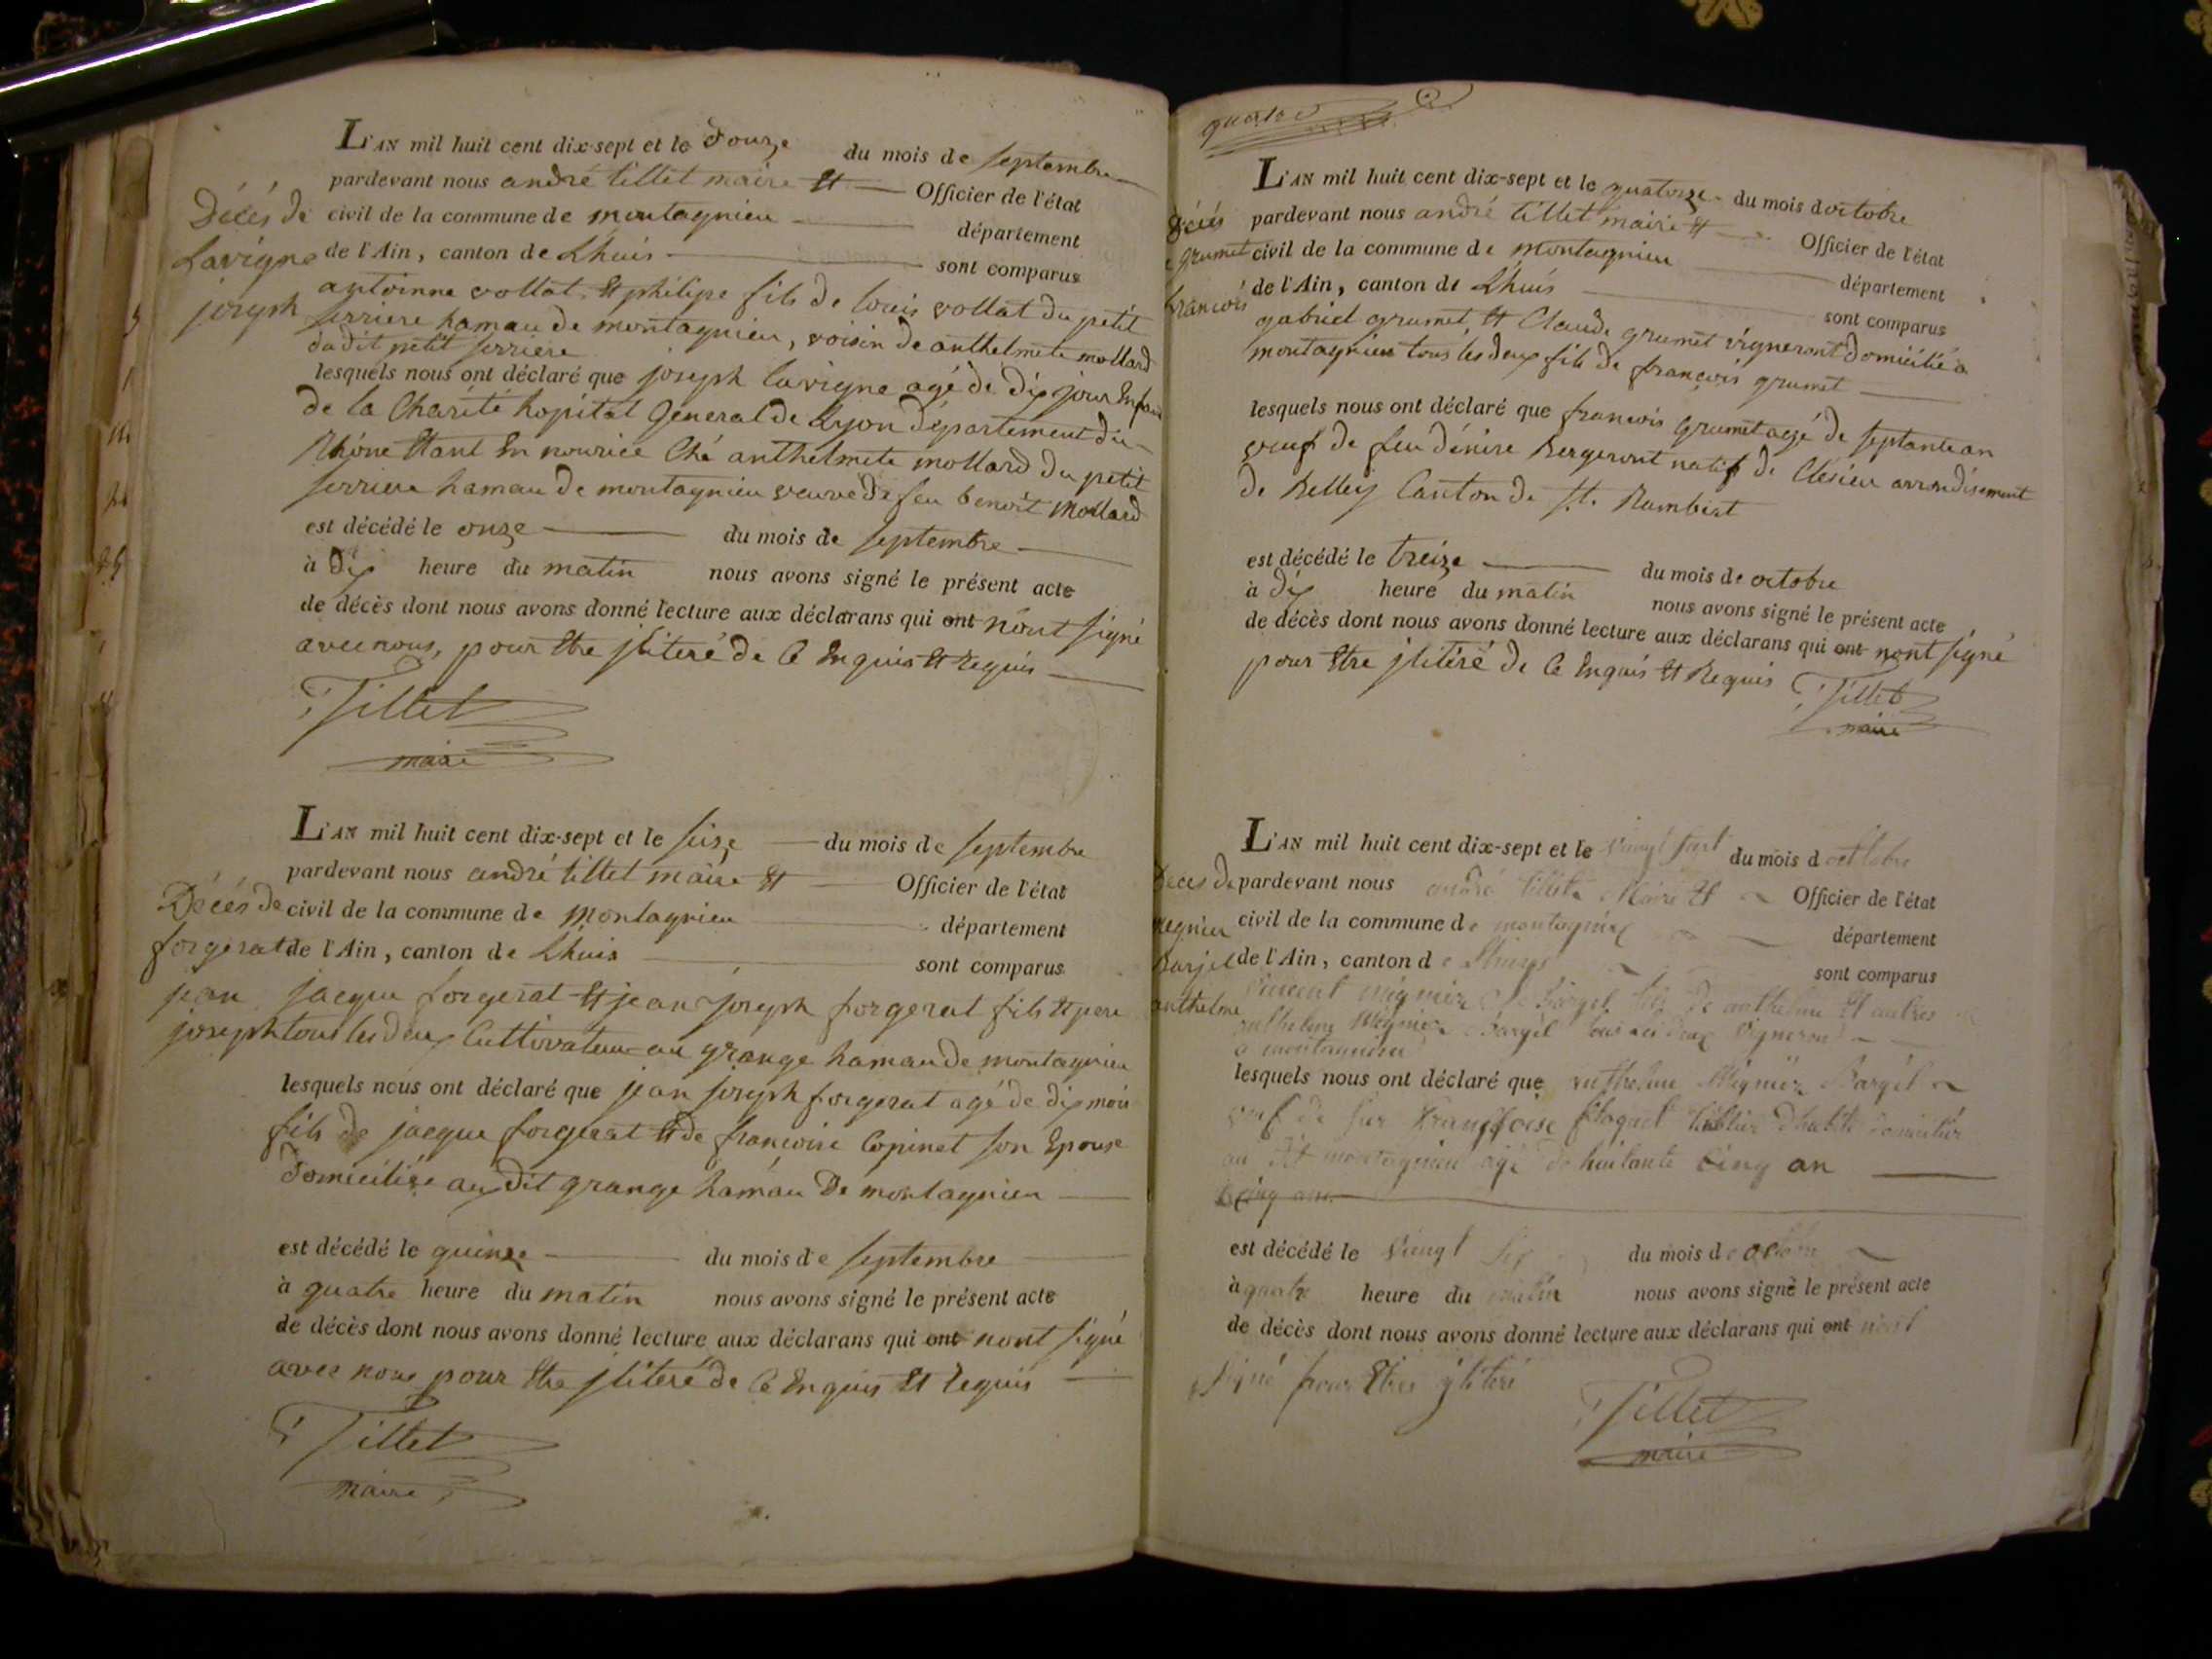 L'AN mil huit cent dix-sept et le Douze du mois de septembre
pardevant nous andré tillet maire Et Officier de l'état
Décés de civil de la commune de montagnieu département
Lavigne de l'Ain, canton de Lhuis sont comparus
joseph antoinne vollat Et philipe fils de louis vollat du petit
serriere hamau de montagnieu, voisin de anthelmete mollard
dudit petit serriere
lesquels nous ont déclaré que joseph lavigne agé de dix jour Enfan
de la Charité hopital General de Lyon département du
Rhône Etant En nourice Ché anthelmete mollard du petit
serriere hamau de montagnieu veuve de feu benoit Mollard
est décédé le onze du mois de septembre
à dix heure du matin nous avons signé le présent acte
de décès dont nous avons donné lecture aux déclarans qui ont nont signé
avec nous, pour Etre jliteré de Ce Enquis Et requis
Tillet
maire
L'AN mil huit cent dix-sept et le seize du mois de septembre
pardevant nous andré tillet maire Et Officier de l'état
Décés de civil de la commune de Montagnieu département
forgerat de l'Ain, canton de Lhuis sont comparus
jean jacque forgerat Et jean joseph forgerat fils Et pere
joseph tous les deux Cultivateur au grange hamau de montagnieu
lesquels nous ont déclaré que jean joseph forgerat agé de dix mois
fils de jacque forgerat Et de francoise Copinet son Epouse
Domicilise au dit grange hamau De montagnieu
est décédé le quinze du mois de septembre
à quatre heure du matin nous avons signé le présent acte
de décès dont nous avons donné lecture aux déclarans qui ont nont signé
avec nous pour Etre jliteré de Ce Enquis Et requis
Tillet
maire
L'AN mil huit cent dix-sept et le quatorze du mois d octobre
décés pardevant nous andré tillet maire Et Officier de l'état
grumet civil de la commune de Montagnieu département
francois de l'Ain, canton de Lhuis sont comparus
gabriel grumet Et Claude grumet vigneront domicilié a
montagnieu tous les deux fils de françois grumet
lesquels nous ont déclaré que francois grumet agé de septante an
veuf de feu dénise Bergeront natif de Clésieu arrondisement
de Belley Canton de St. Rambert
est décédé le treize du mois de octobre
à dix heure du matin nous avons signé le présent acte
de décès dont nous avons donné lecture aux déclarans qui ont nont signé
pour Etre jlitéré de Ce Enquis Et Requis
Tillet
maire
L'AN mil huit cent dix-sept et le vingt sept du mois d octobre
Deces de pardevant nous andré tillet Maire Et Officier de l'état
megnier civil de la commune de montagnieu département
Barjel de l'Ain, canton de sont comparus
anthelme vincent Bargel fils de anthelme Et
anthelme Bargel tous les deux vigneron
a montagnieu
lesquels nous ont déclaré que anthelme Bargel
veuf de
au dit montagnieu agé de huitante cinq an
cinq an
est décédé le vingt six du mois de octobre
à quatre heure du matin nous avons signé le présent acte
de décès dont nous avons donné lecture aux déclarans qui ont nont
signé pour Etres jliteré
Tillet
maire